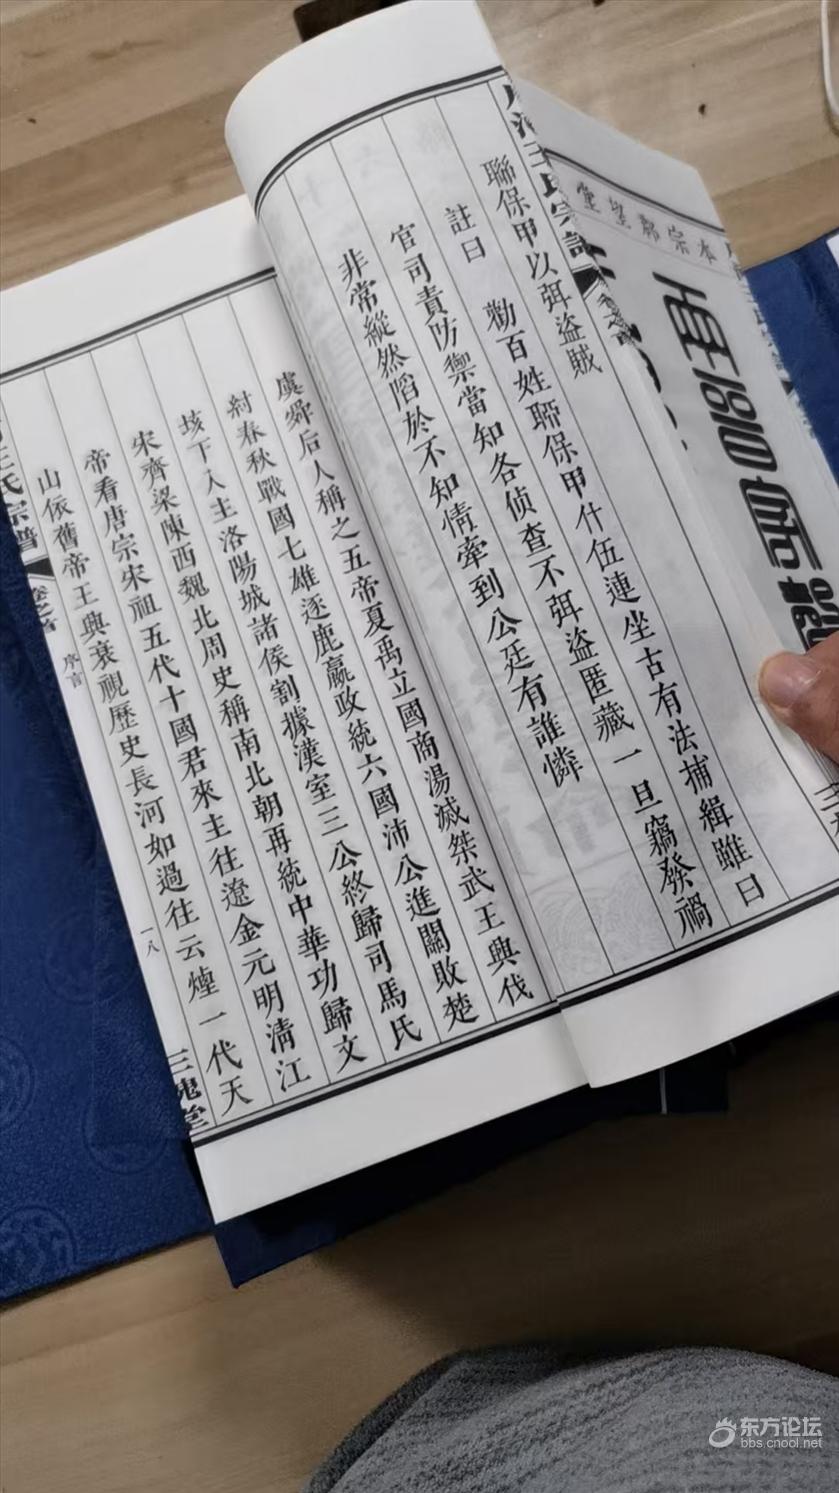 本宗郡望堂
王氏宗譜
聯保甲以弭盜賊
註曰 勸百姓聯保甲什伍連坐古有法捕緝雖曰
官司責防禦當知各偵查不弭盜匿藏一旦竊發禍
非常縱然蹈於不知情牽到公廷有誰憐
虞舜后人稱之五帝夏禹立國商湯滅桀武王興伐
紂春秋戰國七雄逐鹿嬴政統六國沛公進關敗楚
垓下入主洛陽城諸侯割據漢室三公終歸司馬氏
宋齊梁陳西魏北周史稱南北朝再統中華功歸文
帝看唐宗宋祖五代十國君來主往遼金元明清江
山依舊帝王興衰視歷史長河如過往云煙一代天
王氏宗譜 卷之首 序言 一八 三槐堂
东方论坛
bbs.cnool.net